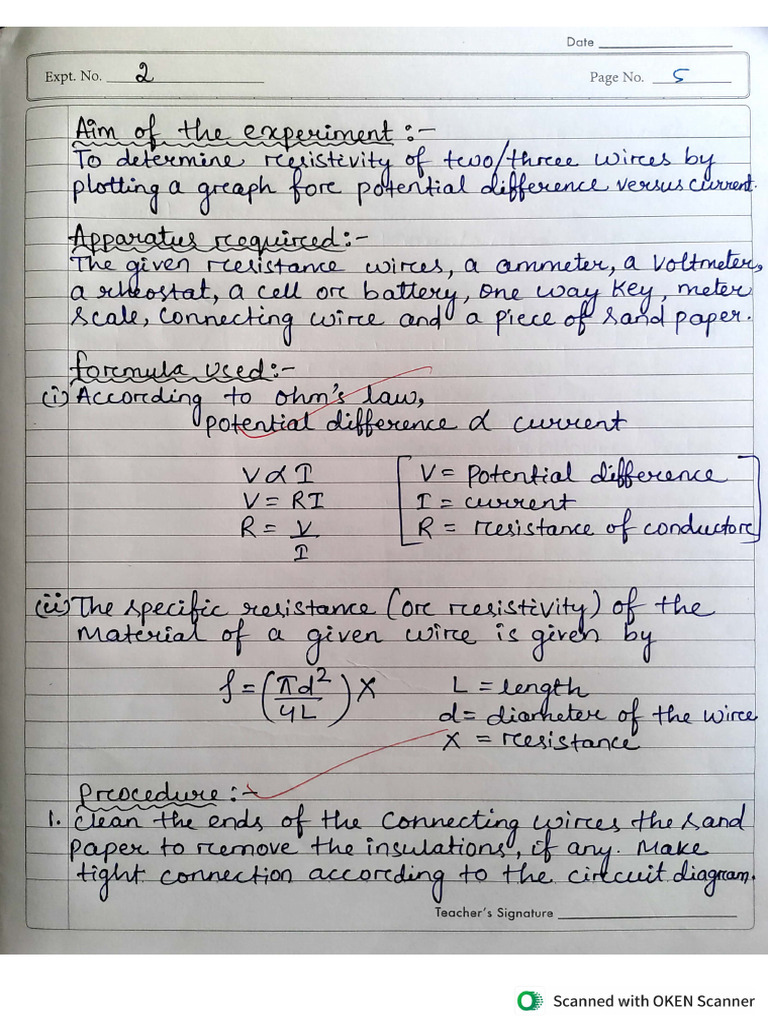 Date
Expt. No. 2
Page No. 5
Aim of the experiment :-
To determine resistivity of two/three wires by
plotting a graph for potential difference versus current.
Apparatus required:-
The given resistance wires, a ammeter, a voltmeter,
a rheostat, a cell or battery, one way key, meter
scale, connecting wire and a piece of sand paper.
formula used:-
(i) According to ohm's law,
potential difference α current
V α I
V = potential difference
V = RI
I = current
R = V/I
R = resistance of conductor
(ii) The specific resistance (or resistivity) of the
material of a given wire is given by
ρ = (πd²/4L) X
L = length
d = diameter of the wire
X = resistance
Procedure :-
1. Clean the ends of the connecting wires the sand
paper to remove the insulations, if any. Make
tight connection according to the circuit diagram.
Teacher's Signature
Scanned with OKEN Scanner